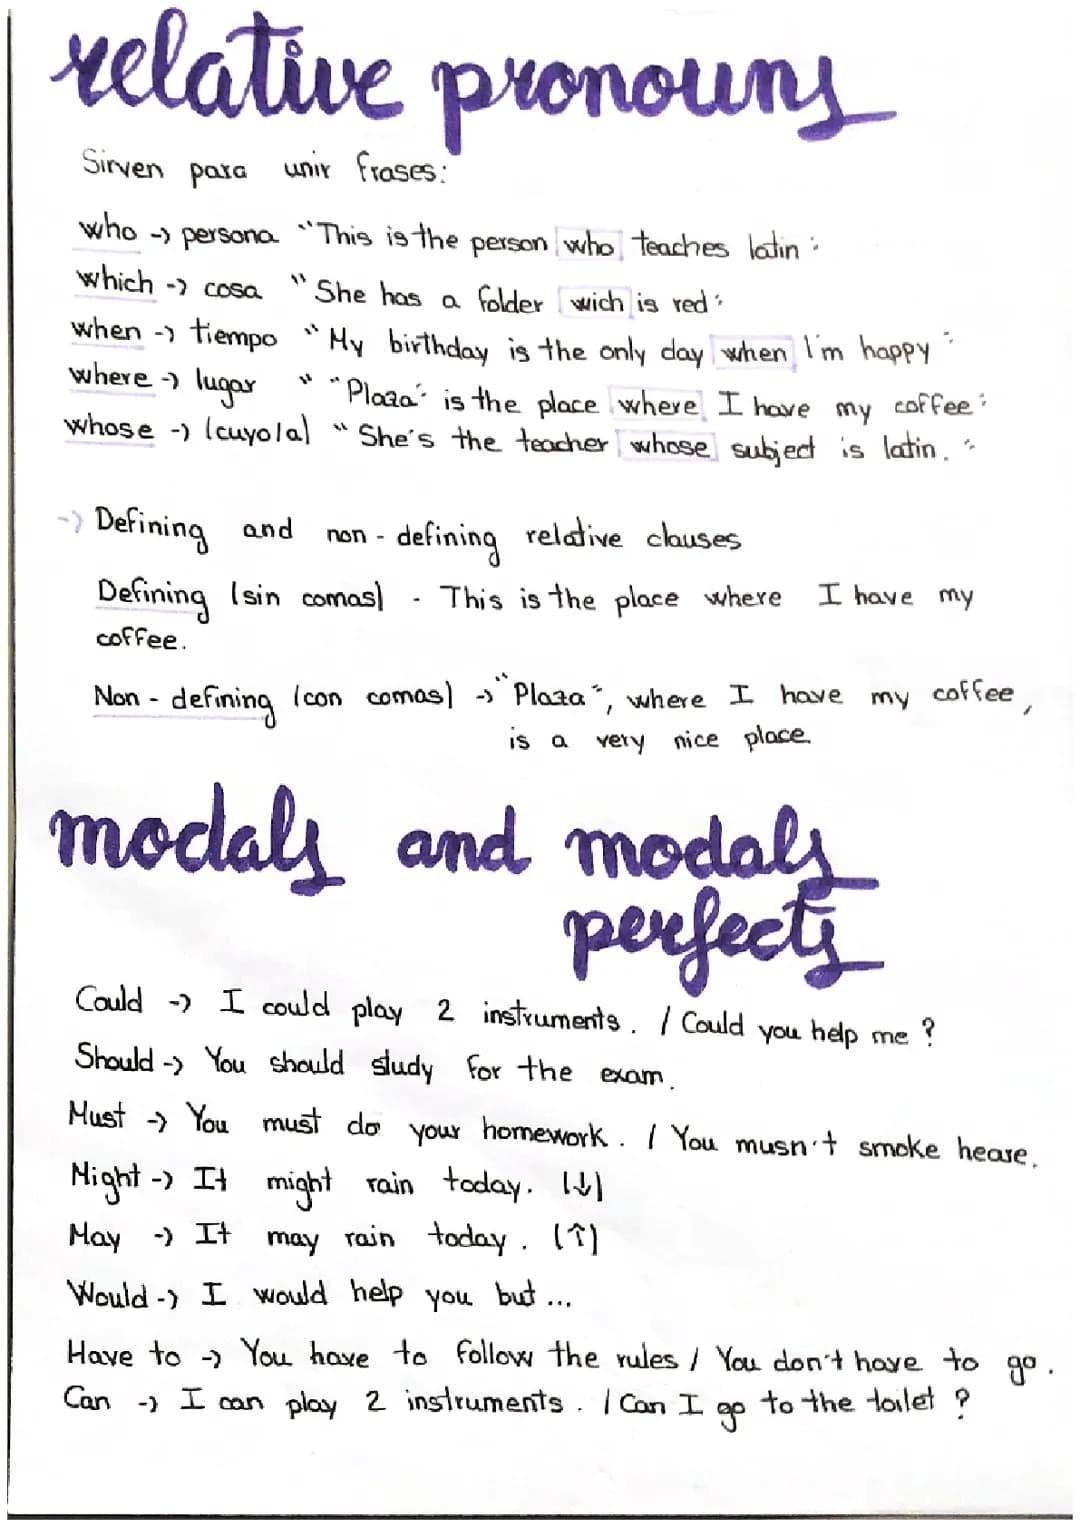 relative pronouns
Sirven para unir frases:
who -> persona "This is the person who teaches latin"
which -> cosa "She has a folder wich is red"
when -> tiempo "My birthday is the only day when I'm happy"
where -> lugar " "Plaza" is the place where I have my coffee"
whose -> (cuyo/a) "She's the teacher whose subject is latin."
-> Defining and non-defining relative clauses
Defining (sin comas) - This is the place where I have my
coffee.
Non-defining (con comas) -> "Plaza", where I have my coffee,
is a very nice place.
modals and modals
perfects
Could -> I could play 2 instruments. / Could you help me?
Should -> You should study for the exam.
Must -> You must do your homework. / You musn't smoke heare.
Might -> It might rain today. (↓)
May -> It may rain today. (↑)
Would -> I would help you but...
Have to -> You have to follow the rules / You don't have to go.
Can -> I can play 2 instruments. / Can I go to the toilet?